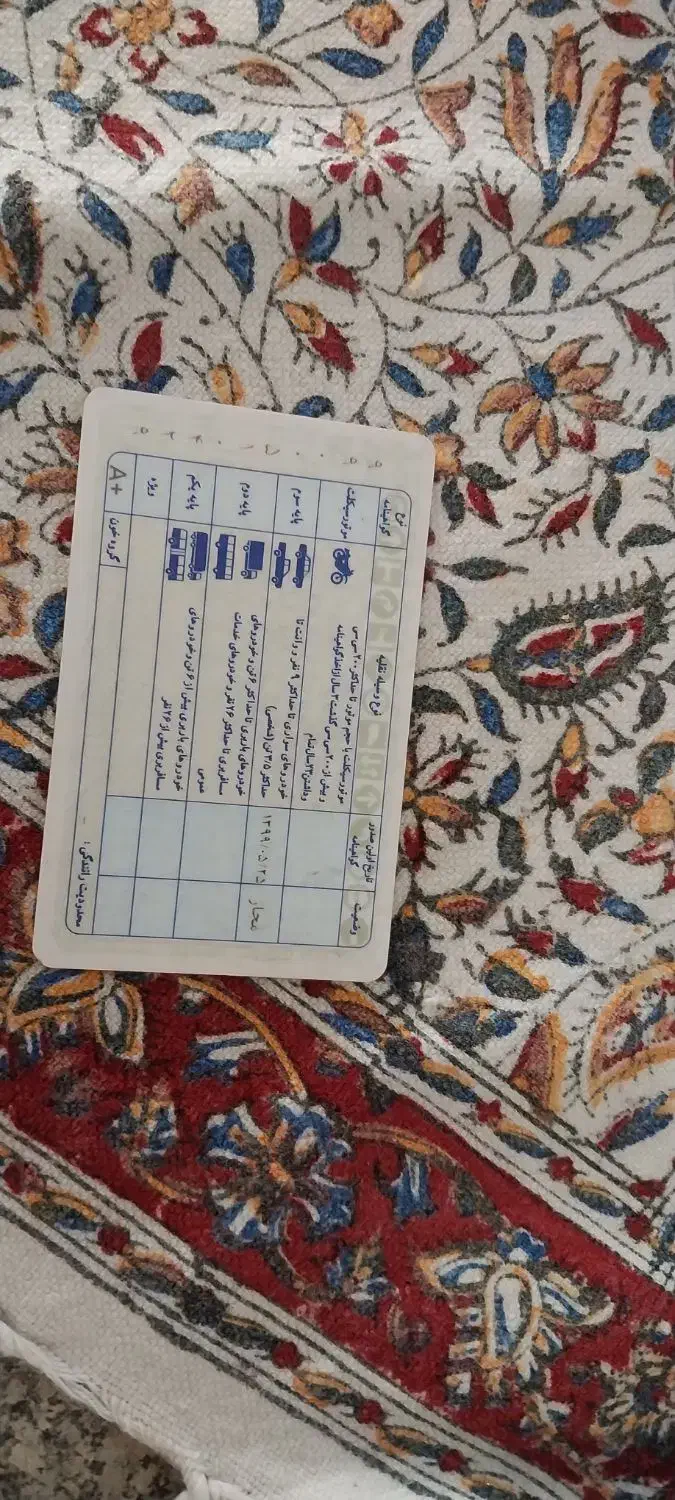 نوع گواهینامه
نوع وسیله نقلیه
تاریخ اولین صدور گواهینامه
وضعیت
موتورسیکلت
موتورسیکلت با حجم موتور تا حداکثر ۲۰۰ سی سی
و بیش از ۲۰۰ سی سی گذشت ۲ سال از اخذ گواهینامه
و داشتن ۲۳ سال تمام
پایه سوم
خودروهای سواری تا حداکثر ۹ نفر و وانت تا
حداکثر ۳/۵ تن (شخصی)
۱۳۹۹/۰۵/۲۵
مجاز
پایه دوم
خودروهای باربری تا حداکثر ۶ تن و خودروهای
مسافربری تا حداکثر ۲۶ نفر و خودروهای خدمات
عمومی
پایه یکم
خودروهای باربری بیش از ۶ تن و خودروهای
مسافربری بیش از ۲۶ نفر
ویژه
گروه خون
A+
محدودیت رانندگی : -